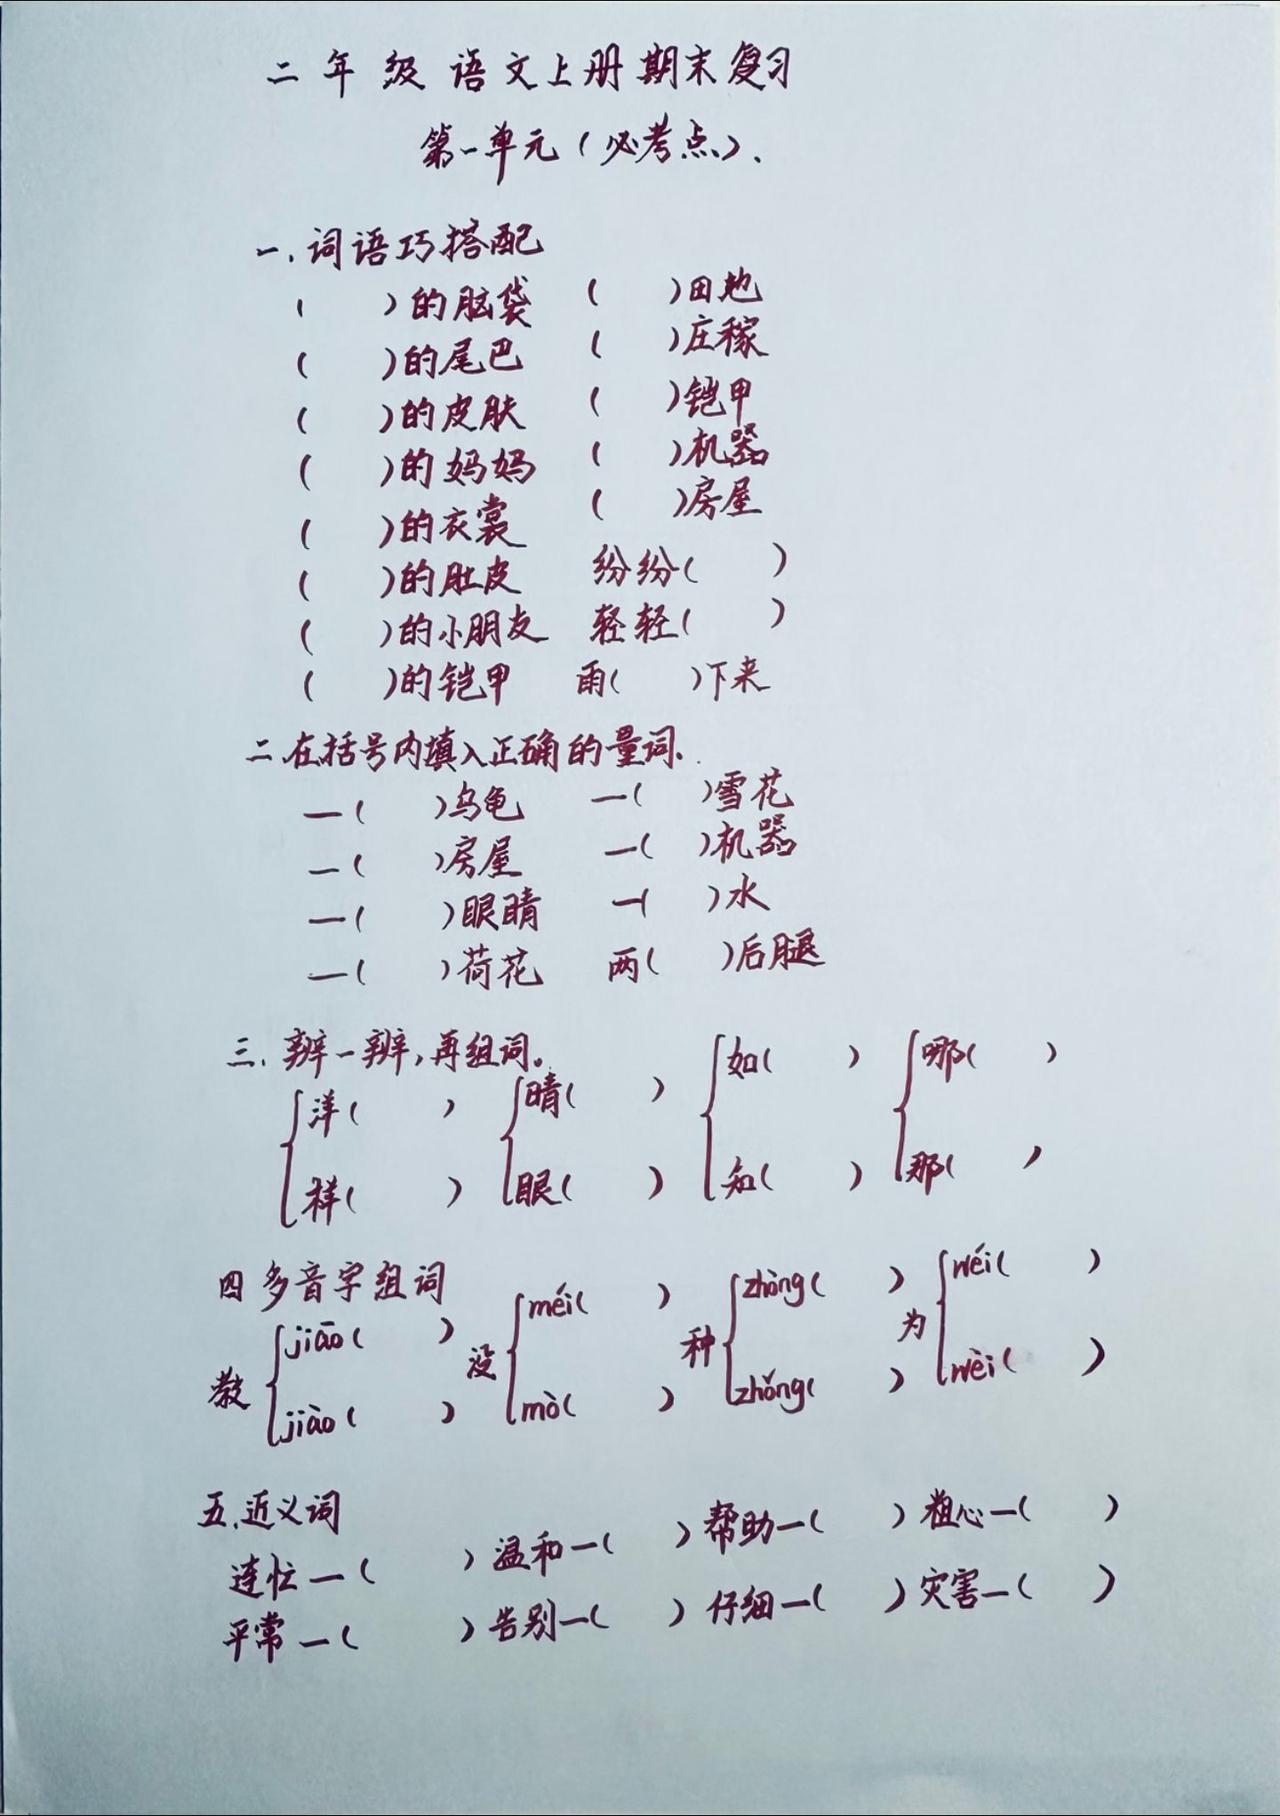 二年级语文上册期末复习
第一单元（必考点）.
一.词语巧搭配
（　　）的脑袋　（　　）田地
（　　）的尾巴　（　　）庄稼
（　　）的皮肤　（　　）铠甲
（　　）的妈妈　（　　）机器
（　　）的衣裳　（　　）房屋
（　　）的肚皮　纷纷（　　）
（　　）的小朋友　轻轻（　　）
（　　）的铠甲　雨（　　）下来
二.在括号内填入正确的量词.
一（　　）乌龟　一（　　）雪花
一（　　）房屋　一（　　）机器
一（　　）眼睛　一（　　）水
一（　　）荷花　两（　　）后腿
三.辨一辨,再组词。
洋（　　）　晴（　　）　如（　　）　哪（　　）
样（　　）　眼（　　）　知（　　）　那（　　）
四 多音字组词
教　jiāo（　　）　没　méi（　　）　种　zhòng（　　）　为　wéi（　　）
jiào（　　）　mò（　　）　zhǒng（　　）　wèi（　　）
五.近义词
连忙—（　　）温和—（　　）帮助—（　　）粗心—（　　）
平常—（　　）告别—（　　）仔细—（　　）灾害—（　　）